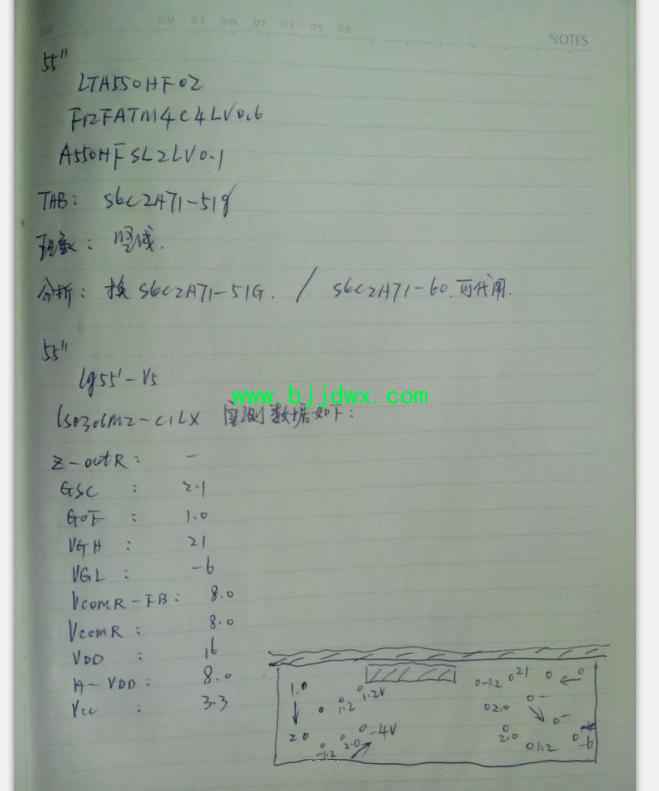 NOTES
55"
LTA550HF02
F12FATM4C4LV0.6
A550HFSL2LV0.1
TAB: S6C2A71-51g
现象: 竖线.
分析: 换 S6C2A71-51G. / S6C2A71-60.可代用.
55"
lg55'-V5
www.bjjdwx.com
实测数据如下:
Z-outR: -
GSC : 2.1
GOE : 1.0
VGH : 21
VGL : -6
VcomR-FB: 8.0
VcomR : 8.0
VDD : 16
H-VDD: 8.0
Vcc : 3.3
1.0 1.2 1.2V 0-1.2 21
2.0 -
2.0 1.2 2.0 -4V 2.0 1.2 -6